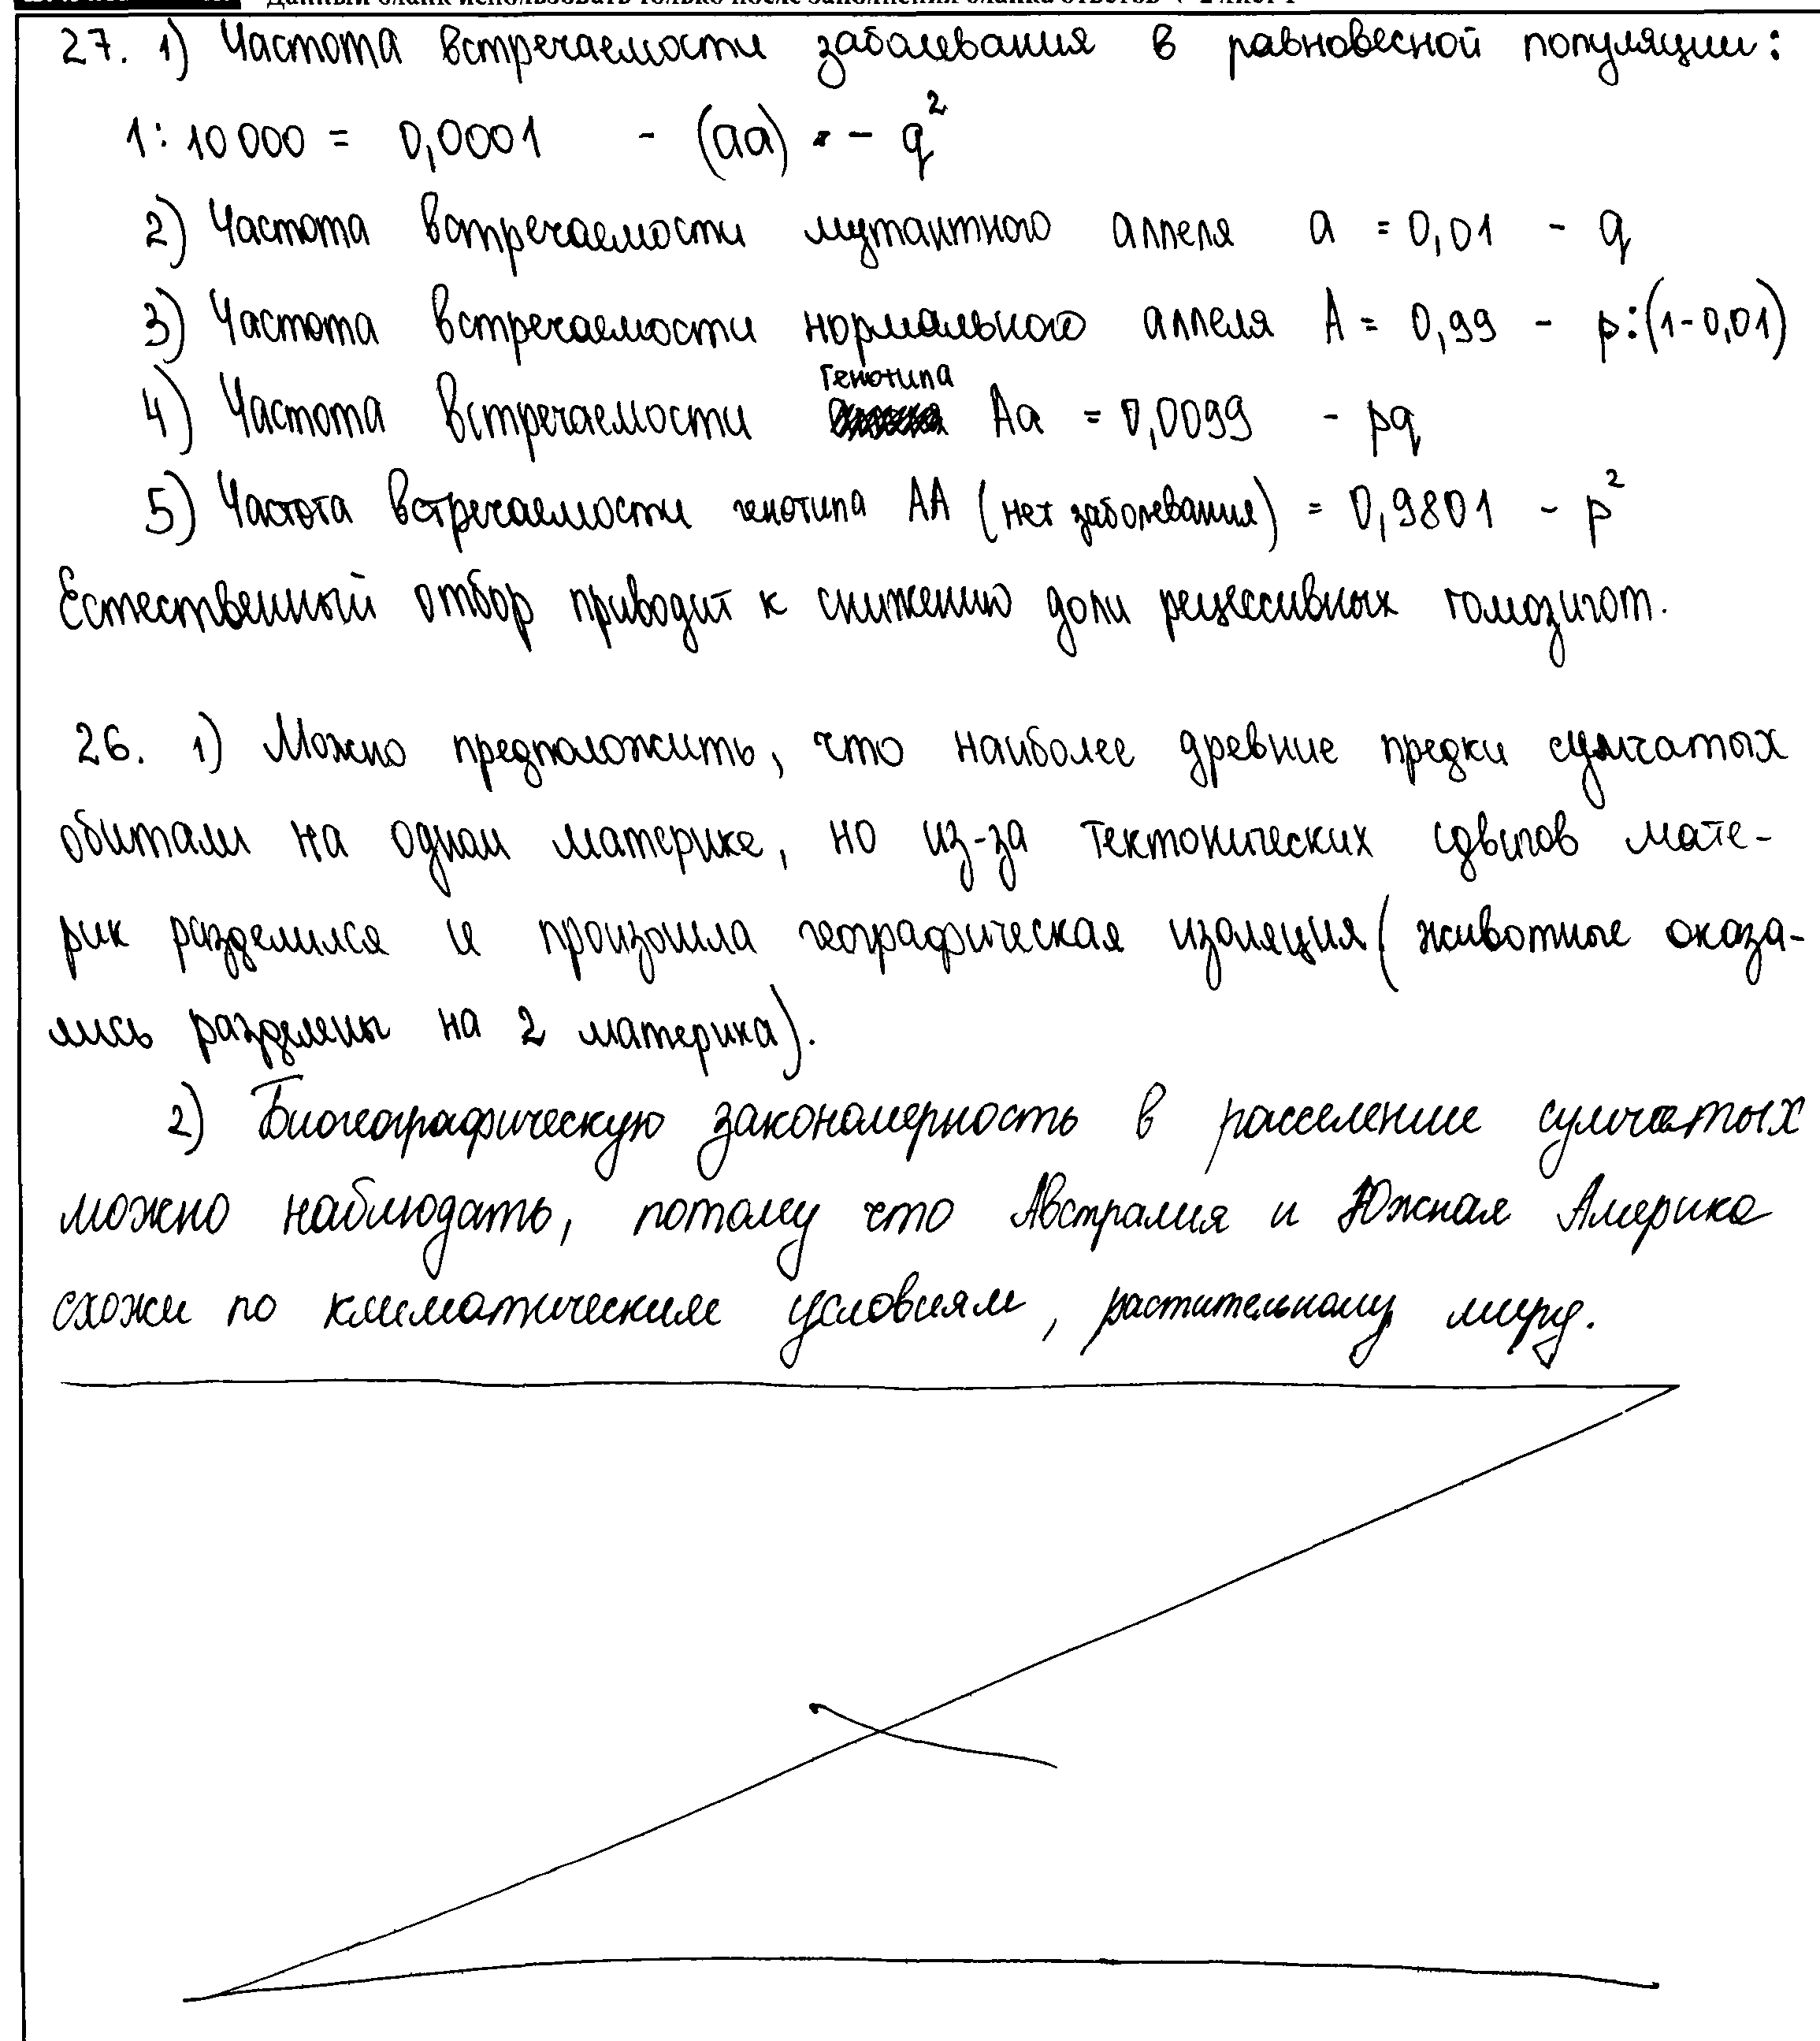 Данный бланк использовать только после заполнения бланка ответов
27. 1) Частота встречаемости заболевания в равновесной популяции:
1:10000 = 0,0001 - (aa) - q²
2) Частота встречаемости мутантного аллеля a = 0,01 - q
3) Частота встречаемости нормального аллеля A = 0,99 - p:(1-0,01)
генотипа
4) Частота встречаемости Aa = 0,0099 - pq
5) Частота встречаемости генотипа AA (нет заболевания) = 0,9801 - p²
Естественный отбор приводит к снижению доли рецессивных гомозигот.
26. 1) Можно предположить, что наиболее древние предки сумчатых
обитали на одном материке, но из-за тектонических сдвигов мате-
рик разделился и произошла географическая изоляция (животные оказа-
лись разделены на 2 материка).
2) Биогеографическую закономерность в расселение сумчатых
можно наблюдать, потому что Австралия и Южная Америка
схожи по климатическим условиям, растительному миру.